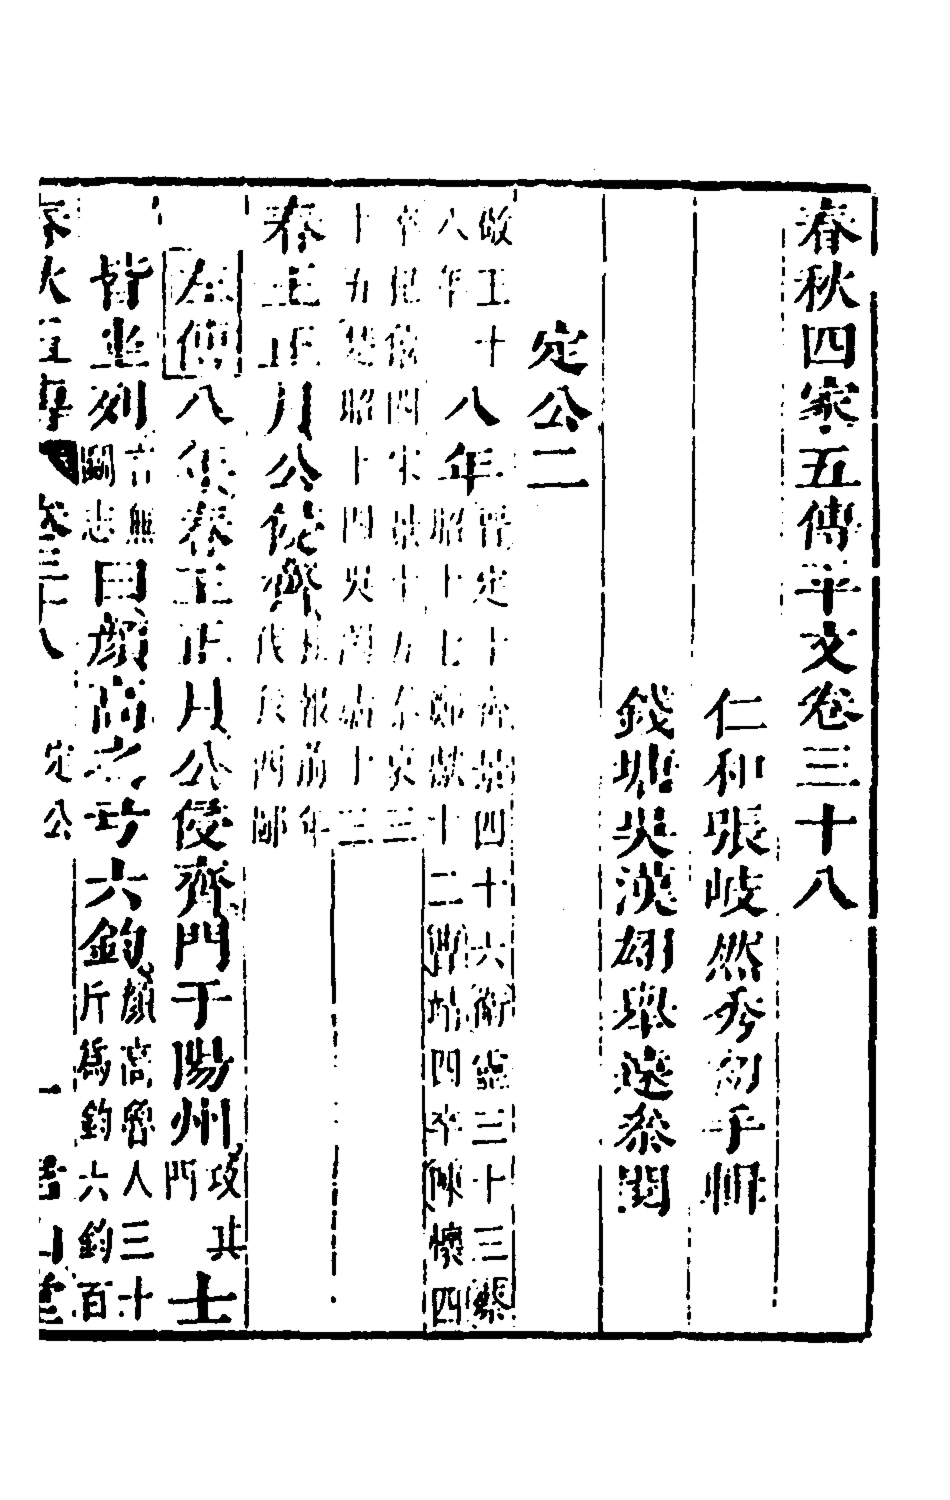 春秋四家五傳平文卷三十八
仁和張岐然秀初手輯
錢塘吳漢翊舉遠叅閱
定公二
敬王十八年八年晉定十齊景四十六衛靈三十三蔡昭十七鄭獻十二曹靖四卒陳懷四
卒杞僖四宋景十五秦哀三十五楚昭十四吳闔廬十三
春王正月公侵齊報前年伐我西鄙
左傳八年春王正月公侵齊門于陽州攻其門士
皆坐列言無鬬志曰顏高之弓六鈞顏高魯人三十斤爲鈞六鈞百
春秋五傳 卷三十八 定公 一